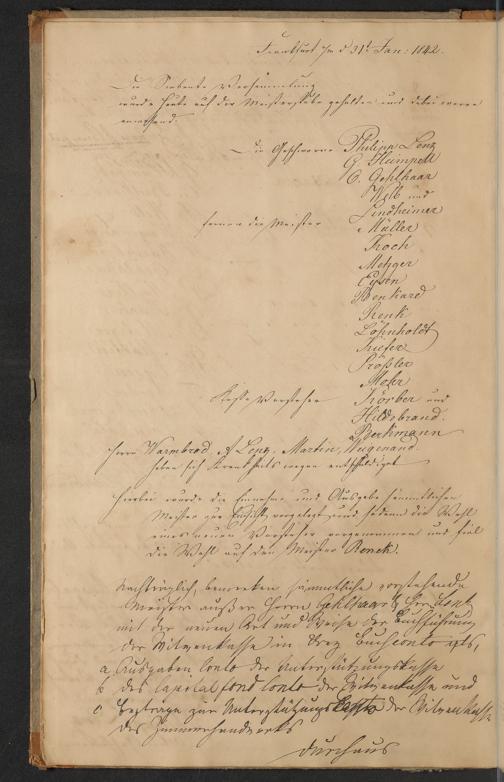 Frankfurt a/m d 31t Jan: 1842.
Die Siebente Versammlung
wurde heute auf der Meisterstube gehalten und dabei waren
anwesend.
Die Geschworne Philipp Lenz
G. Humpell
C. Gehlhaar
Kolb und
Lindheimer
ferner die Meister Müller
Koch
Metzger
Eysen
Menhard
Renk
Löhnholdt
Kiefer
Prößler
Mohr
Kasse Vorsteher Körber und
Hildebrand.
Berkmann
Herrn Warmbrod, A Lenz, Martin, Wiegenand.
haben sich Krankheits wegen entschuldiget
Hierbei wurde die Einnahme und Ausgabe sämmtlichen
Meister zur Einsicht vorgelegt, und sodann die Wahl
eines neuen Vorsteher vorgenommen und fiel
die Wahl auf den Meister Renck.
Nachträglich bemerken sämmtliche vorstehende
Meister außer Herrn Gehlhaar & Herr Lenz
mit der neuen Art und Weise der Buchführung
der Witwenkasse in drey Buchconto als,
a Ausgaben Conto der Unterstützungskasse
b des Capitalfond Conto der Witwenkasse und
c Beytrage zur Unterstützungskasse der Witwen Kasse
des Zimmerhandwerks
durchaus